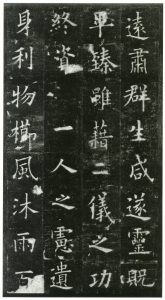 遠肅群生咸遂靈貺
畢臻雖藉二儀之功
終資一人之慮遺
身利物櫛風沐雨百